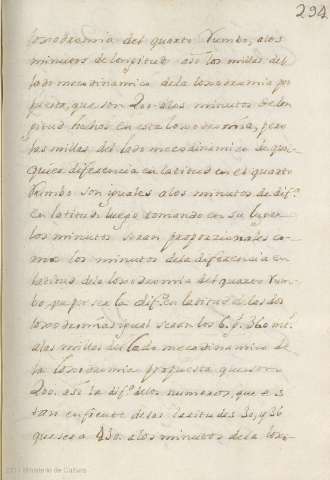 294
loxodromia del quarto rumbo, a los
minutos de longitud así los millas del
lado mecodinamico de la loxodromia pro
puesta, que son 200. a los minutos de lon
gitud hechos en esta loxodromia, pero
las millas del lado mecodinamico de qual
quiera diferencia en latitud en el quarto
Rumbo son yguales a los minutos de dif.ª
en latitud. luego tomando en su lugar
los minutos seran proporzionales co
mo los minutos de la diferencia en
latitud de la loxodromia del quarto rum
bo, por ser la dif.ª en latitud de las dos
loxodromias igual seran los 6. g. 360 mi.
a las millas del lado mecodinamico de
la loxodromia propuesta que son
200. asi la dif.ª de los numeros, que es
tan enfrente de las latitudes 30, y 36
que sea 430. a los minutos de la loxo-
Ministerio de Cultura